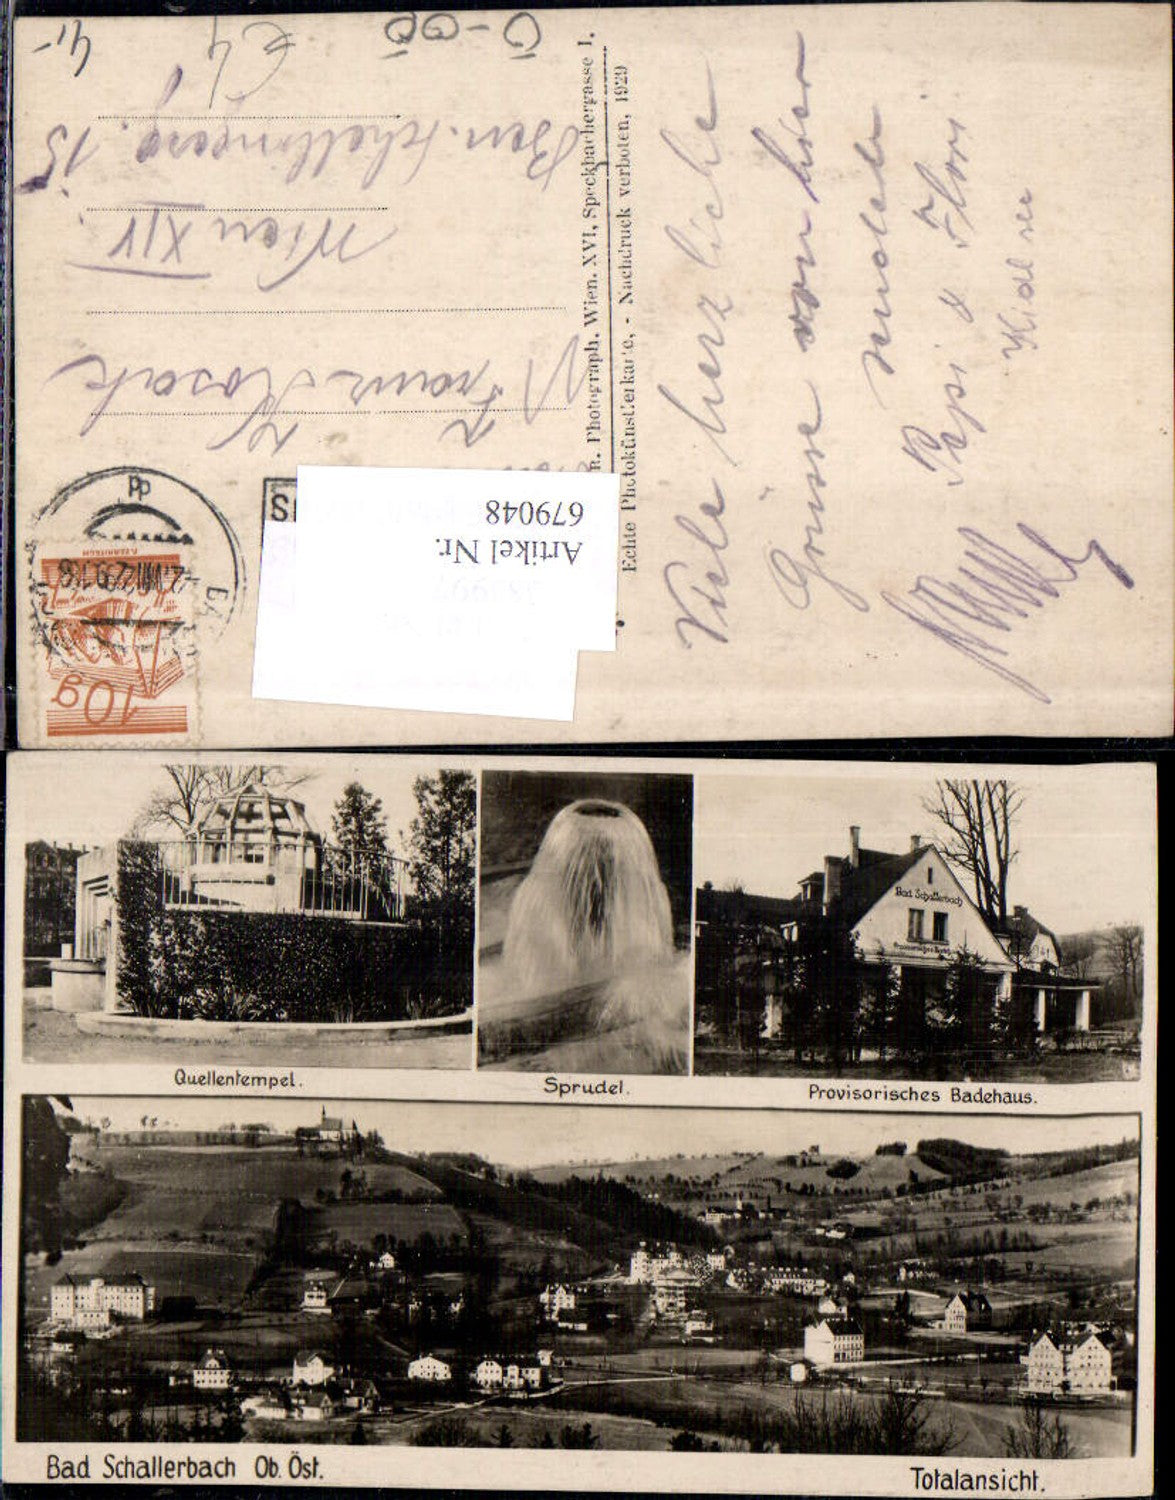 Ü-OÖ
€4
4,-
Viele herzliche
Grüsse von hier
sendet
Papi & Flori
Kidl
Franz Kosak
Wien XIV.
15
R. Photograph, Wien. XVI, Speckbachergasse 1.
Echte Photokünstlerkarte, - Nachdruck verboten, 1929
Artikel Nr.
679048
10g
Bad Schallerbach
Quellentempel.
Sprudel.
Provisorisches Badehaus.
Bad Schallerbach Ob. Öst.
Totalansicht.